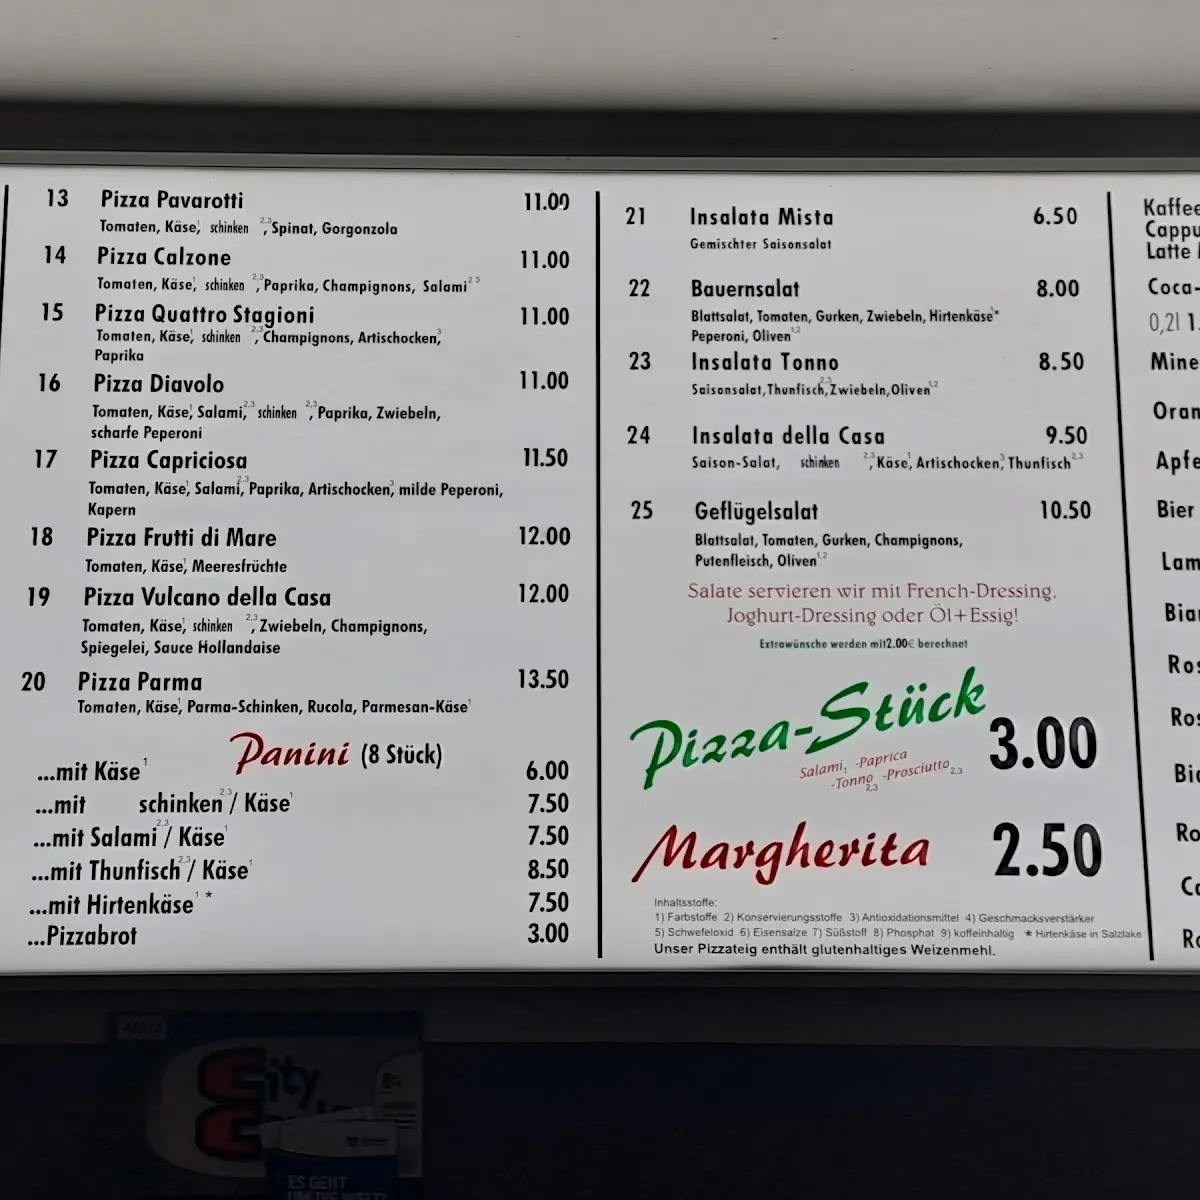 13 Pizza Pavarotti 11.00
Tomaten, Käse¹, schinken ²,³, Spinat, Gorgonzola
14 Pizza Calzone 11.00
Tomaten, Käse¹, schinken ²,³, Paprika, Champignons, Salami² ³
15 Pizza Quattro Stagioni 11.00
Tomaten, Käse¹, schinken ²,³, Champignons, Artischocken,³
Paprika
16 Pizza Diavolo 11.00
Tomaten, Käse¹, Salami,²,³ schinken ²,³, Paprika, Zwiebeln,
scharfe Peperoni
17 Pizza Capriciosa 11.50
Tomaten, Käse¹, Salami,²,³ Paprika, Artischocken,³ milde Peperoni,
Kapern
18 Pizza Frutti di Mare 12.00
Tomaten, Käse¹, Meeresfrüchte
19 Pizza Vulcano della Casa 12.00
Tomaten, Käse¹, schinken ²,³, Zwiebeln, Champignons,
Spiegelei, Sauce Hollandaise
20 Pizza Parma 13.50
Tomaten, Käse¹, Parma-Schinken, Rucola, Parmesan-Käse¹
Panini (8 Stück)
...mit Käse¹ 6.00
...mit schinken²,³/ Käse¹ 7.50
...mit Salami²,³/ Käse¹ 7.50
...mit Thunfisch²,³/ Käse¹ 8.50
...mit Hirtenkäse¹ * 7.50
...Pizzabrot 3.00
21 Insalata Mista 6.50
Gemischter Saisonsalat
22 Bauernsalat 8.00
Blattsalat, Tomaten, Gurken, Zwiebeln, Hirtenkäse¹*
Peperoni, Oliven¹,²
23 Insalata Tonno 8.50
Saisonsalat, Thunfisch,²,³ Zwiebeln, Oliven¹,²
24 Insalata della Casa 9.50
Saison-Salat, schinken ²,³, Käse¹, Artischocken,³ Thunfisch²,³
25 Geflügelsalat 10.50
Blattsalat, Tomaten, Gurken, Champignons,
Putenfleisch, Oliven¹,²
Salate servieren wir mit French-Dressing.
Joghurt-Dressing oder Öl+Essig!
Extrawünsche werden mit 2.00€ berechnet
Pizza-Stück 3.00
Salami, -Paprica
-Tonno 2,3 -Prosciutto 2,3
Margherita 2.50
Inhaltsstoffe:
1) Farbstoffe 2) Konservierungsstoffe 3) Antioxidationsmittel 4) Geschmacksverstärker
5) Schwefeloxid 6) Eisensalze 7) Süßstoff 8) Phosphat 9) koffeinhaltig * Hirtenkäse in Salzlake
Unser Pizzateig enthält glutenhaltiges Weizenmehl.
Kaffee
Cappu
Latte
Coca-
0,2l 1.
Mine
Oran
Apfe
Bier
Lam
Bian
Ros
Ros
Bia
Ro
Ca
Ro
City
ES GEHT